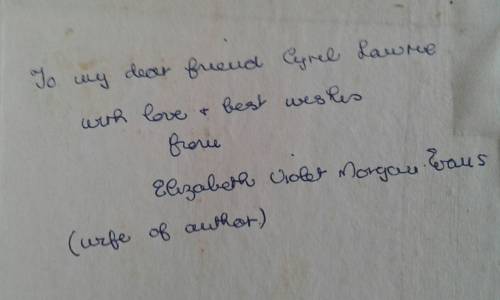 To my dear friend Cyril Lawrie
with love + best wishes
from
Elizabeth Violet Morgan-Evans
(wife of author)